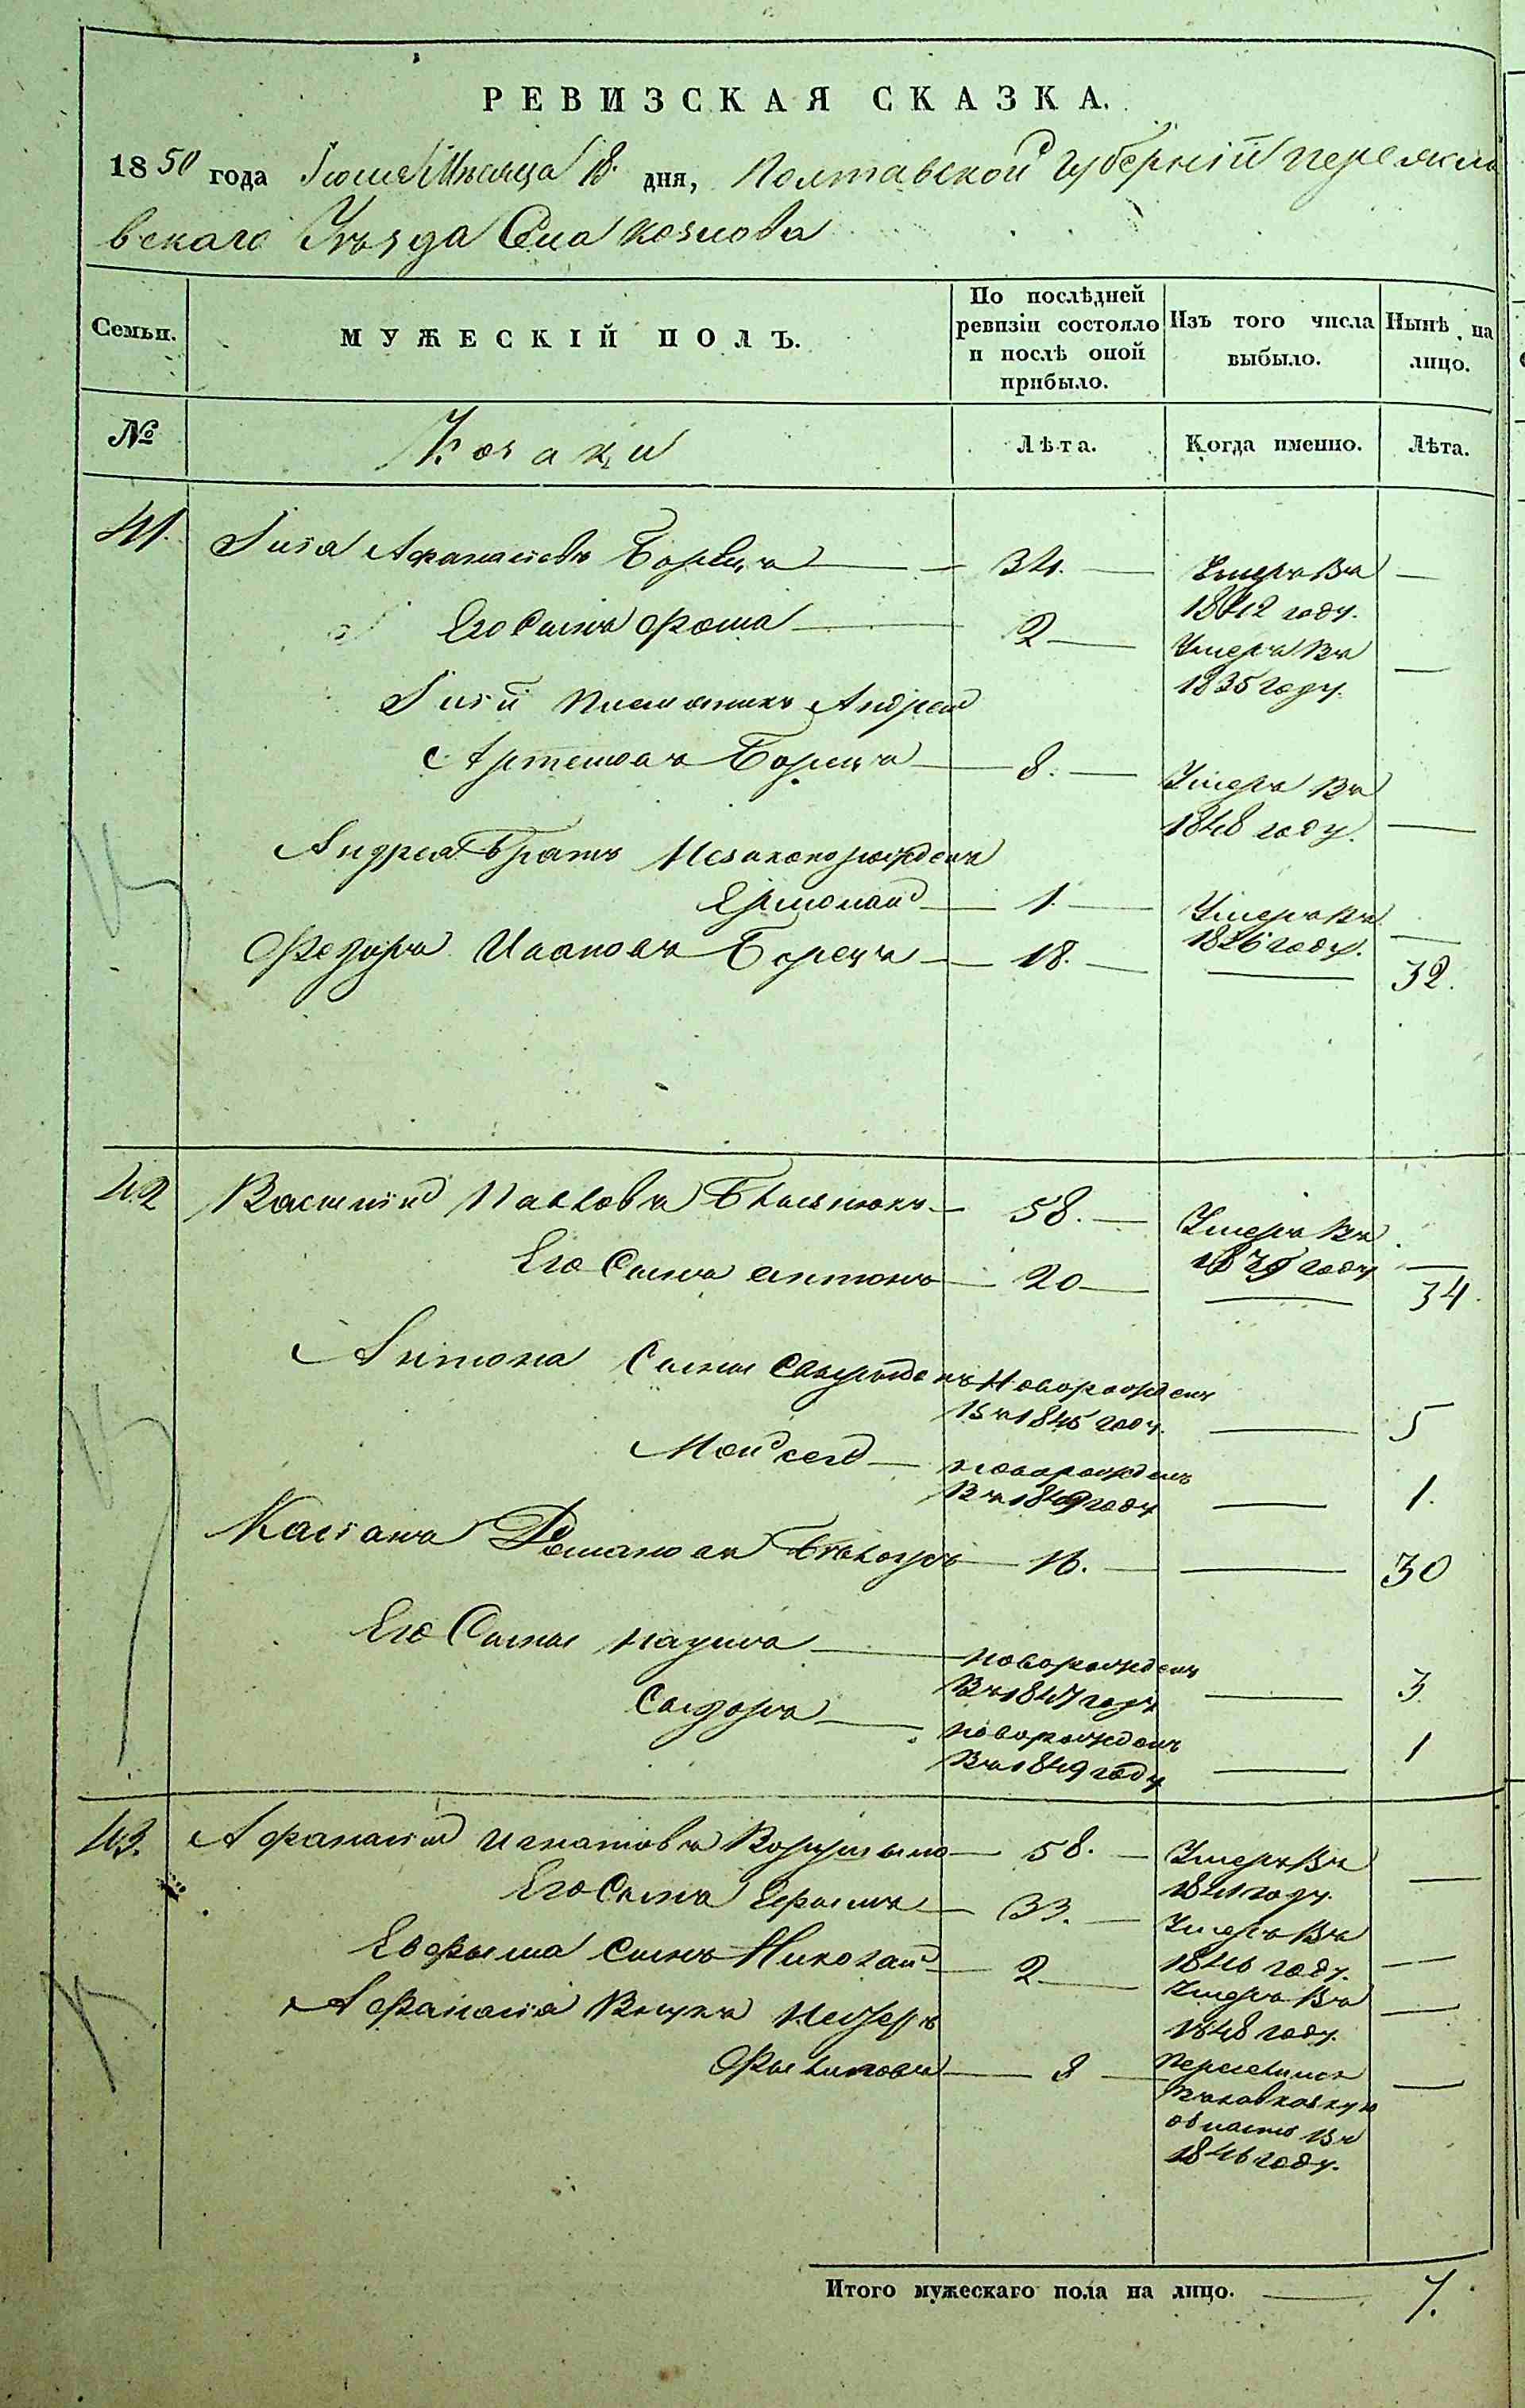 РЕВИЗСКАЯ СКАЗКА.
1850 года Іюня Мѣсяца 18. дня, Полтавской Губерніи Переясла
вскаго Уѣзда Села Козлова
Семьи.
МУЖЕСКІЙ ПОЛЪ.
По послѣдней ревизіи состояло и послѣ оной прибыло.
Изъ того числа выбыло.
Нынѣ на лицо.
№
Козаки
Лѣта.
Когда именно.
Лѣта.
41. Афанасіевъ Борецъ — 34. — Умеръ въ 1842 году. —
Его Сынъ Фома — 2 — Умеръ въ 1835 году. —
Племяникъ Андрей
Артемовъ Борецъ — 8. — Умеръ въ 1848 году. —
Андрея Братъ Незаконорожденъ
Ермолай — 1. — Умеръ въ году. —
Федоръ Ивановъ Борецъ — 18. — — 32.
42 Василій Павловъ — 58. — Умеръ въ году —
Его Сынъ Антонъ — 20 — — 34.
Антона Сыны Новорожденъ въ 1845 году. — 5
Мойсей — новорожденъ въ 1849 году — 1.
Касіанъ Романовъ — 16. — — 30
Его Сыны Наумъ — новорожденъ въ 1847 году — 3.
Сидоръ — новорожденъ въ 1849 году — 1
43. Афанасій Игнатовъ — 58. — Умеръ въ 1841 году. —
Его Сынъ — 33. — Умеръ въ 1846 году. —
Сынъ Николай — 2 — Умеръ въ 1848 году. —
Афанасія Внукъ
Филиповъ — 8 — Переселился Кавказкую область въ 1846 году. —
Итого мужескаго пола на лицо. — 7.